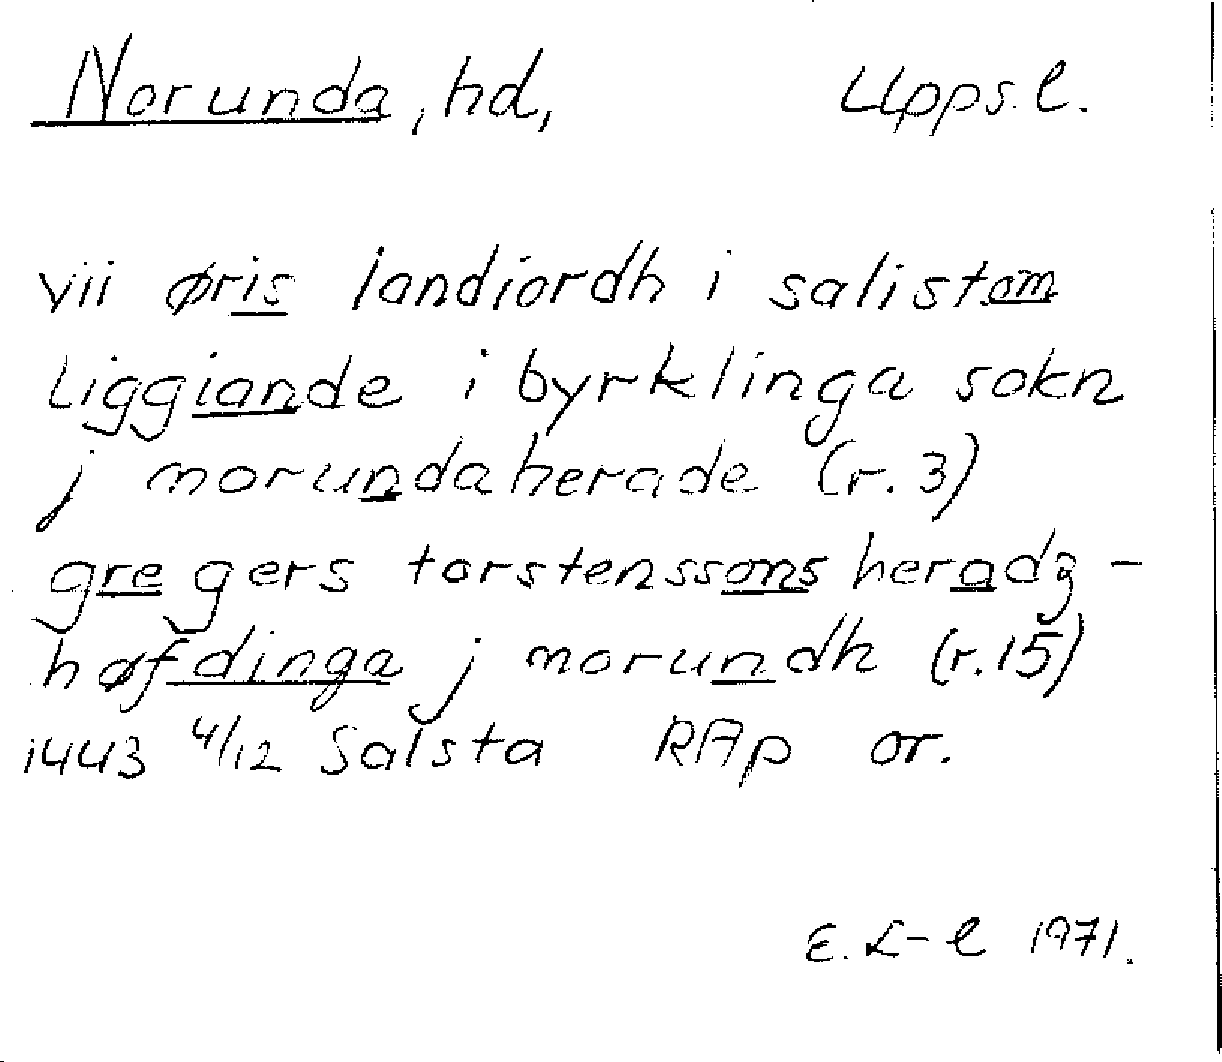 Norunda, hd, Upps. l.
vii øris landiordh i salistom
liggiande i byrklinga sokn
j norundaherade (r. 3)
gregers torstenssons heradz-
høfdinga j norundh (r. 15)
1443 4/12 Salsta RAp or.
E. L-l 1971.